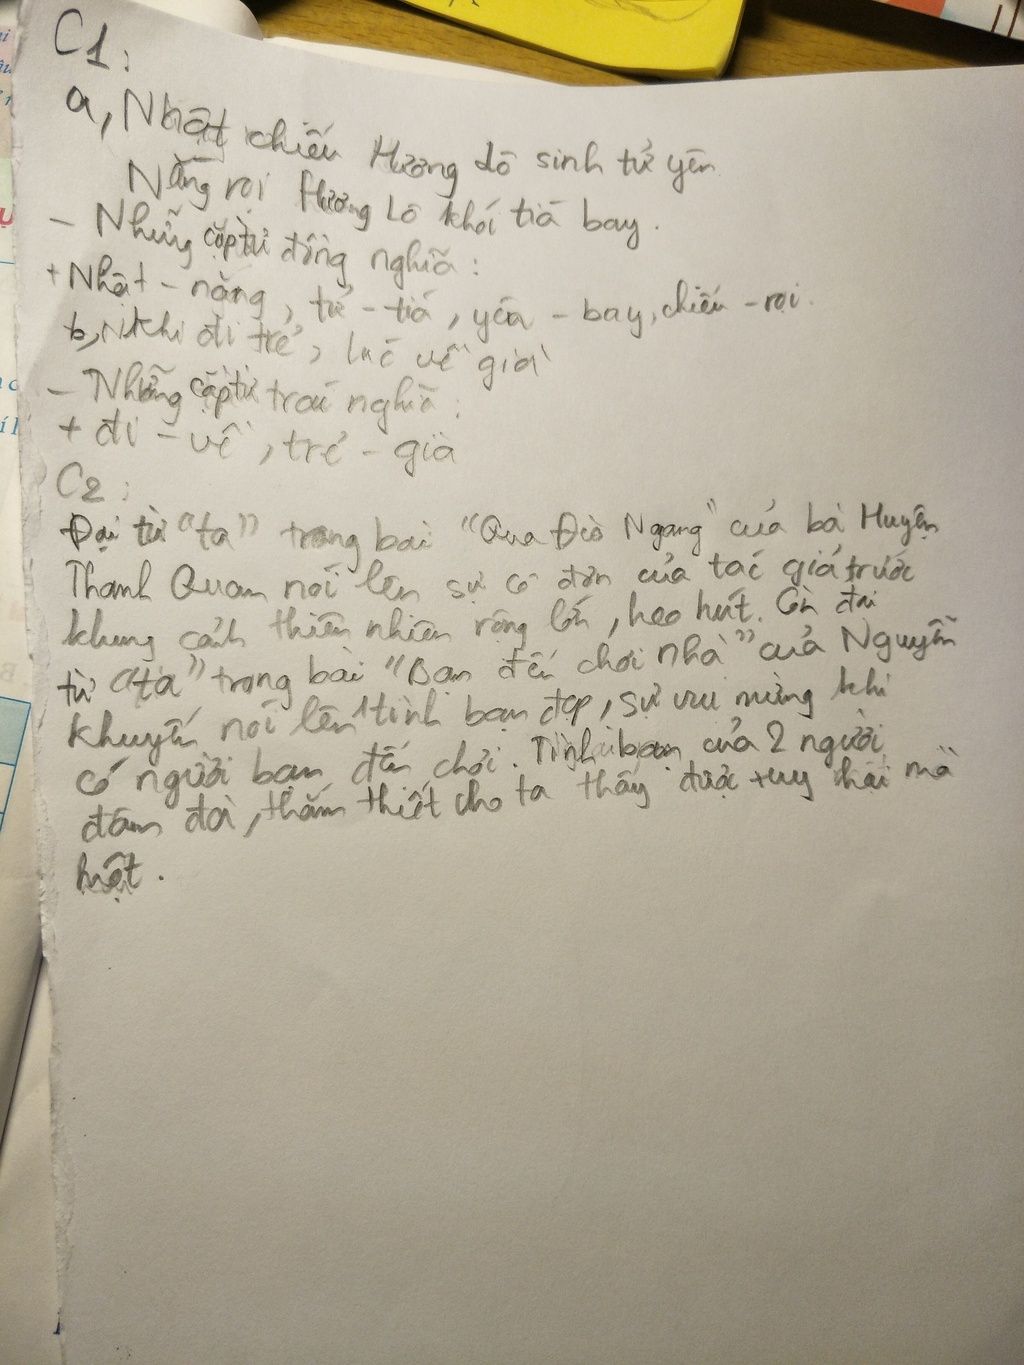 C1:
a, Nhật chiếu Hương Lô sinh tử yên
Nắng rọi Hương Lô khói tía bay.
- Những cặp từ đồng nghĩa:
+ Nhật - nắng, tử - tía, yên - bay, chiếu - rọi.
b, Khi đi trẻ, lúc về già
- Những cặp từ trái nghĩa:
+ đi - về, trẻ - già
C2:
Đại từ "ta" trong bài "Qua Đèo Ngang" của bà Huyện
Thanh Quan nói lên sự cô đơn của tác giả trước
khung cảnh thiên nhiên rộng lớn, heo hút. Còn đại
từ "ta" trong bài "Bạn đến chơi nhà" của Nguyễn
Khuyến nói lên tình bạn đẹp, sự vui mừng khi
có người bạn đến chơi. Tình bạn của 2 người
đậm đà, thắm thiết cho ta thấy được tuy hai mà
một.